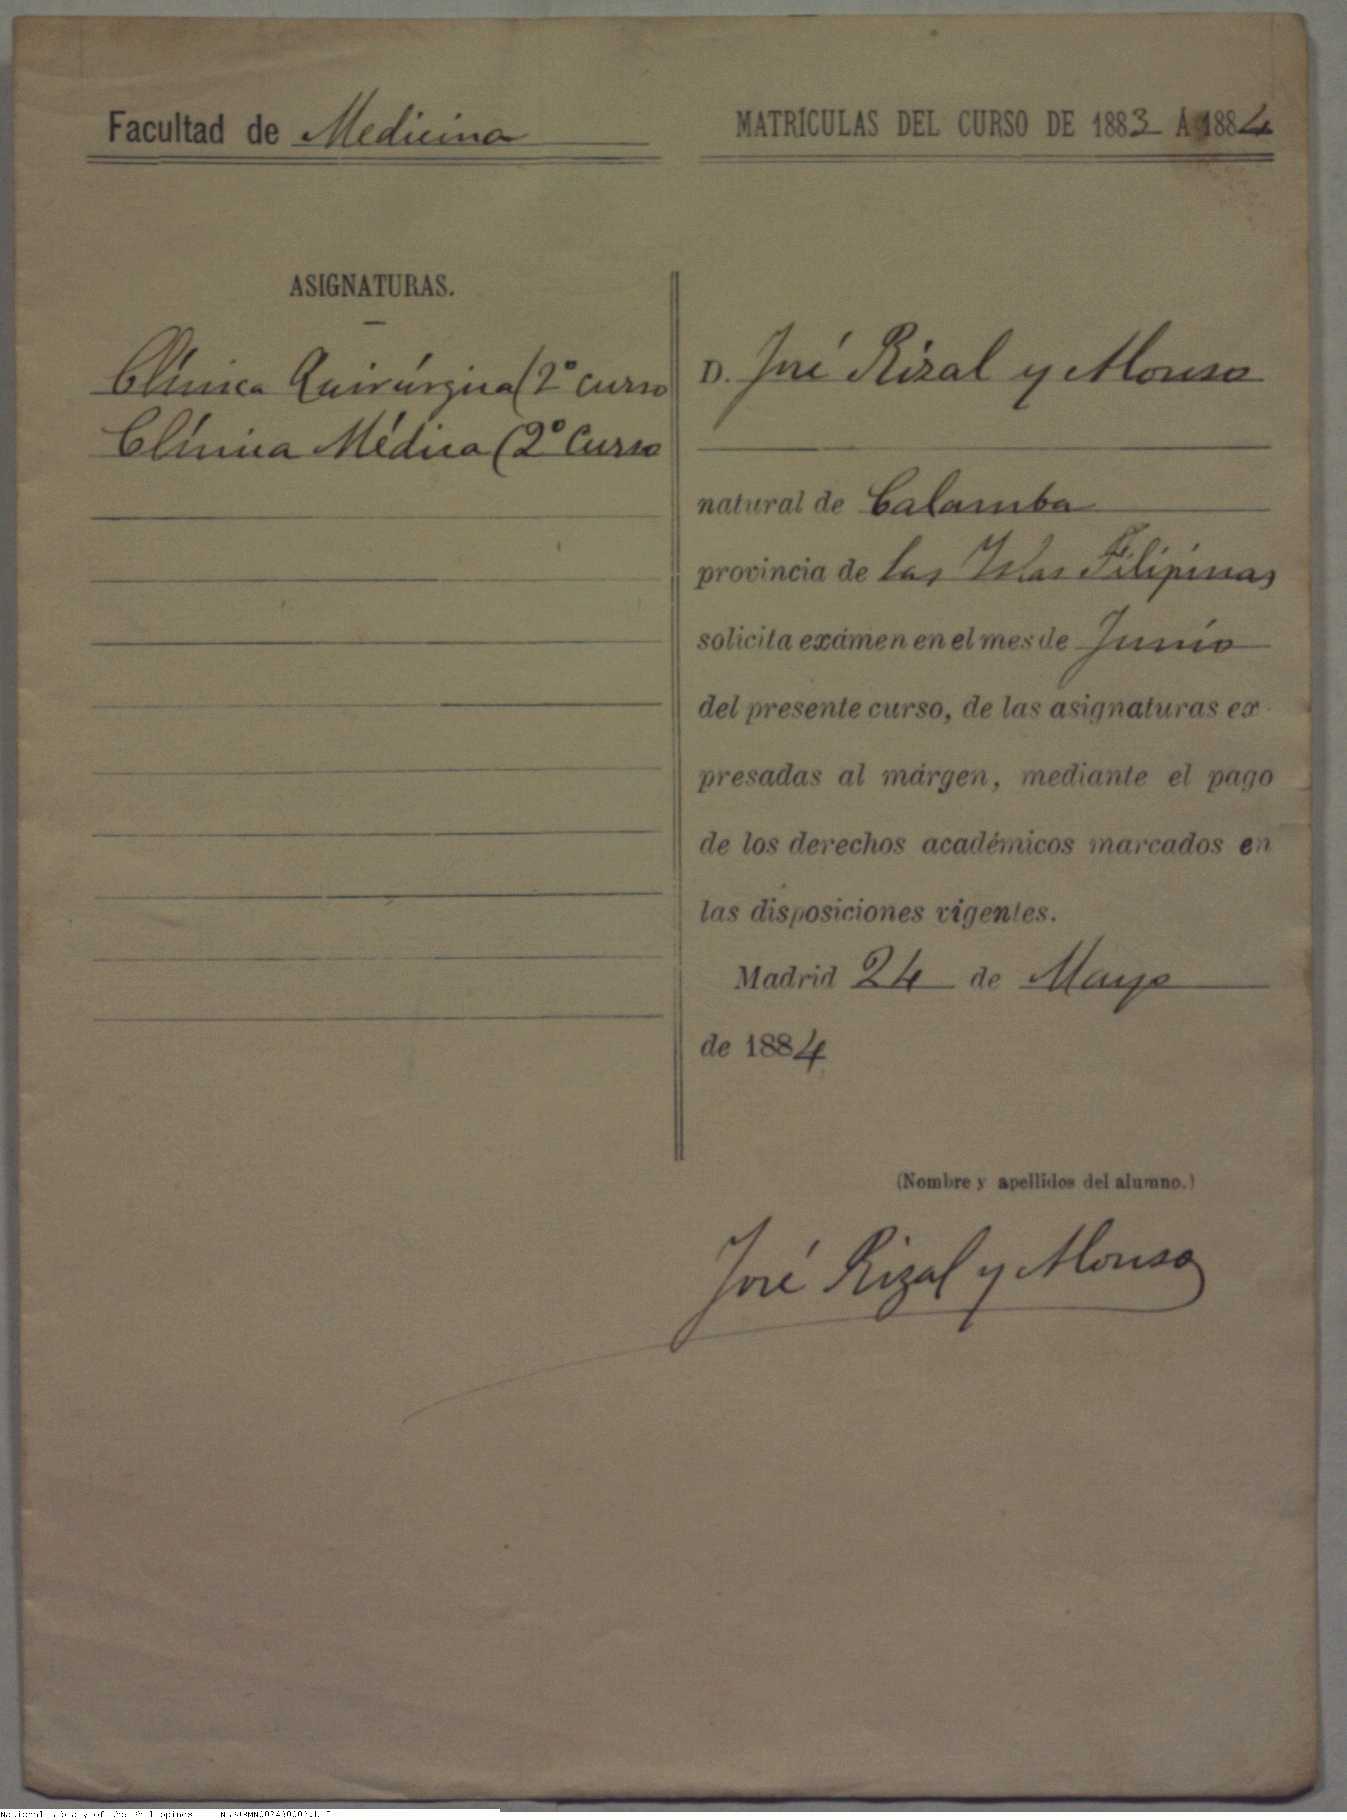 Facultad de Medicina
MATRÍCULAS DEL CURSO DE 1883 Á 1884
ASIGNATURAS.
Clínica Quirúrgica (2º curso
Clínica Médica (2º Curso
D. José Rizal y Alonso
natural de Calamba
provincia de las Islas Filipinas
solicita exámen en el mes de Junio
del presente curso, de las asignaturas ex-
presadas al márgen, mediante el pago
de los derechos académicos marcados en
las disposiciones vigentes.
Madrid 24 de Mayo
de 1884
(Nombre y apellidos del alumno.)
José Rizal y Alonso
National Library of the Philippines